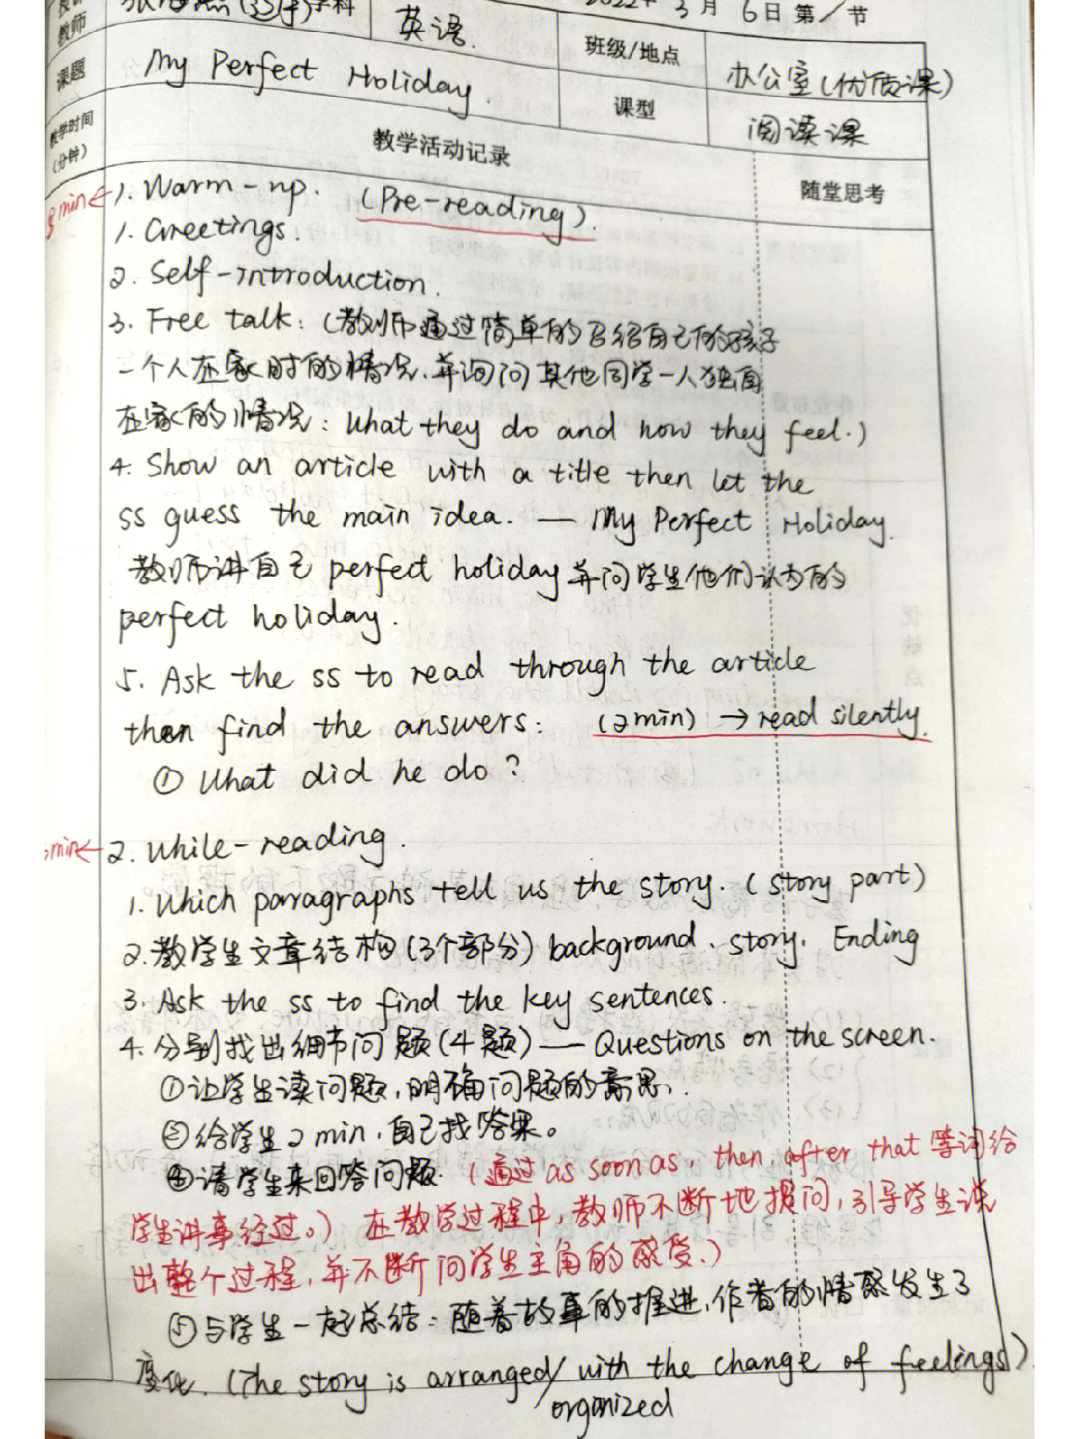 教师 学科 英语 2022年 3月 6日 第 节
课题 My Perfect Holiday. 班级/地点 办公室(优质课)
课型 阅读课
教学时间(分钟) 教学活动记录 随堂思考
min ← 1. Warm-up. (Pre-reading).
1. Greetings.
2. Self-introduction.
3. Free talk: (教师通过简单的召绍自己的孩子
一个人在家时的情况,并询问其他同学一人独自
在家的情况: What they do and how they feel.)
4. Show an article with a title then let the
ss guess the main idea. — My Perfect Holiday.
教师讲自己 perfect holiday 并问学生他们认为的
perfect holiday.
5. Ask the ss to read through the article
then find the answers: (2min) → read silently.
① What did he do?
min ← 2. While-reading.
1. Which paragraphs tell us the story. (story part)
2. 教学生文章结构(3个部分) background. story. Ending
3. Ask the ss to find the key sentences.
4. 分别找出细节问题(4题) — Questions on the screen.
①让学生读问题,明确问题的意思.
②给学生2min,自己找答案。
④请学生来回答问题. (通过 as soon as, then, after that 等词给
学生讲事经过。) 在教学过程中,教师不断地提问,引导学生说
出整个过程,并不断问学生主角的感受.)
⑤与学生一起总结: 随着故事的推进,作者的情感发生了
变化. (The story is arranged/ with the change of feelings).
organized